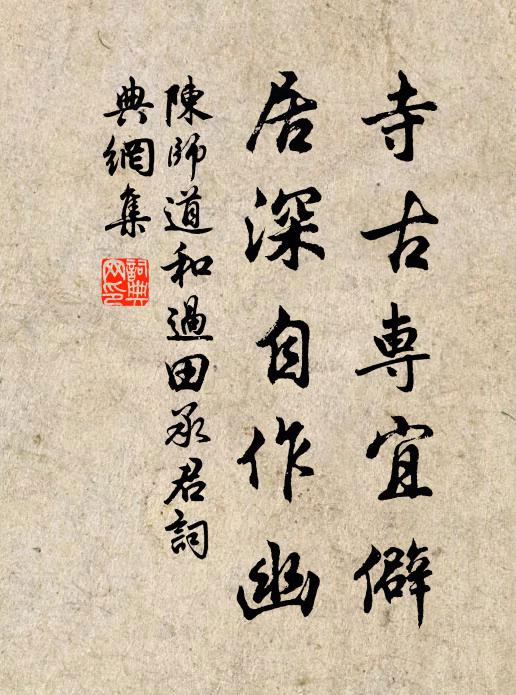 寺古専宜僻
居深自作幽
陳師道和過田承君詞
典網集
詞典網印